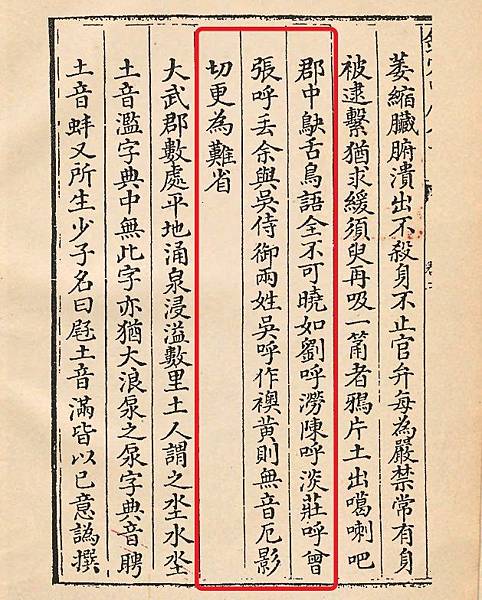 萎縮臟腑潰出不殺身不止官弁每為嚴禁常有身
被逮繫猶求緩須臾再吸一筩者鴉片土出噶喇吧
郡中鴃舌鳥語全不可曉如劉呼澇陳呼淡莊呼曾
張呼丟余與吳侍御兩姓吳呼作襖黃則無音厄影
切更為難省
大武郡數處平地涌泉浸溢數里土人謂之坔水坔
土音濫字典中無此字亦猶大浪泵之泵字典音聘
土音蚌又所生少子名曰屘土音滿皆以已意譌撰